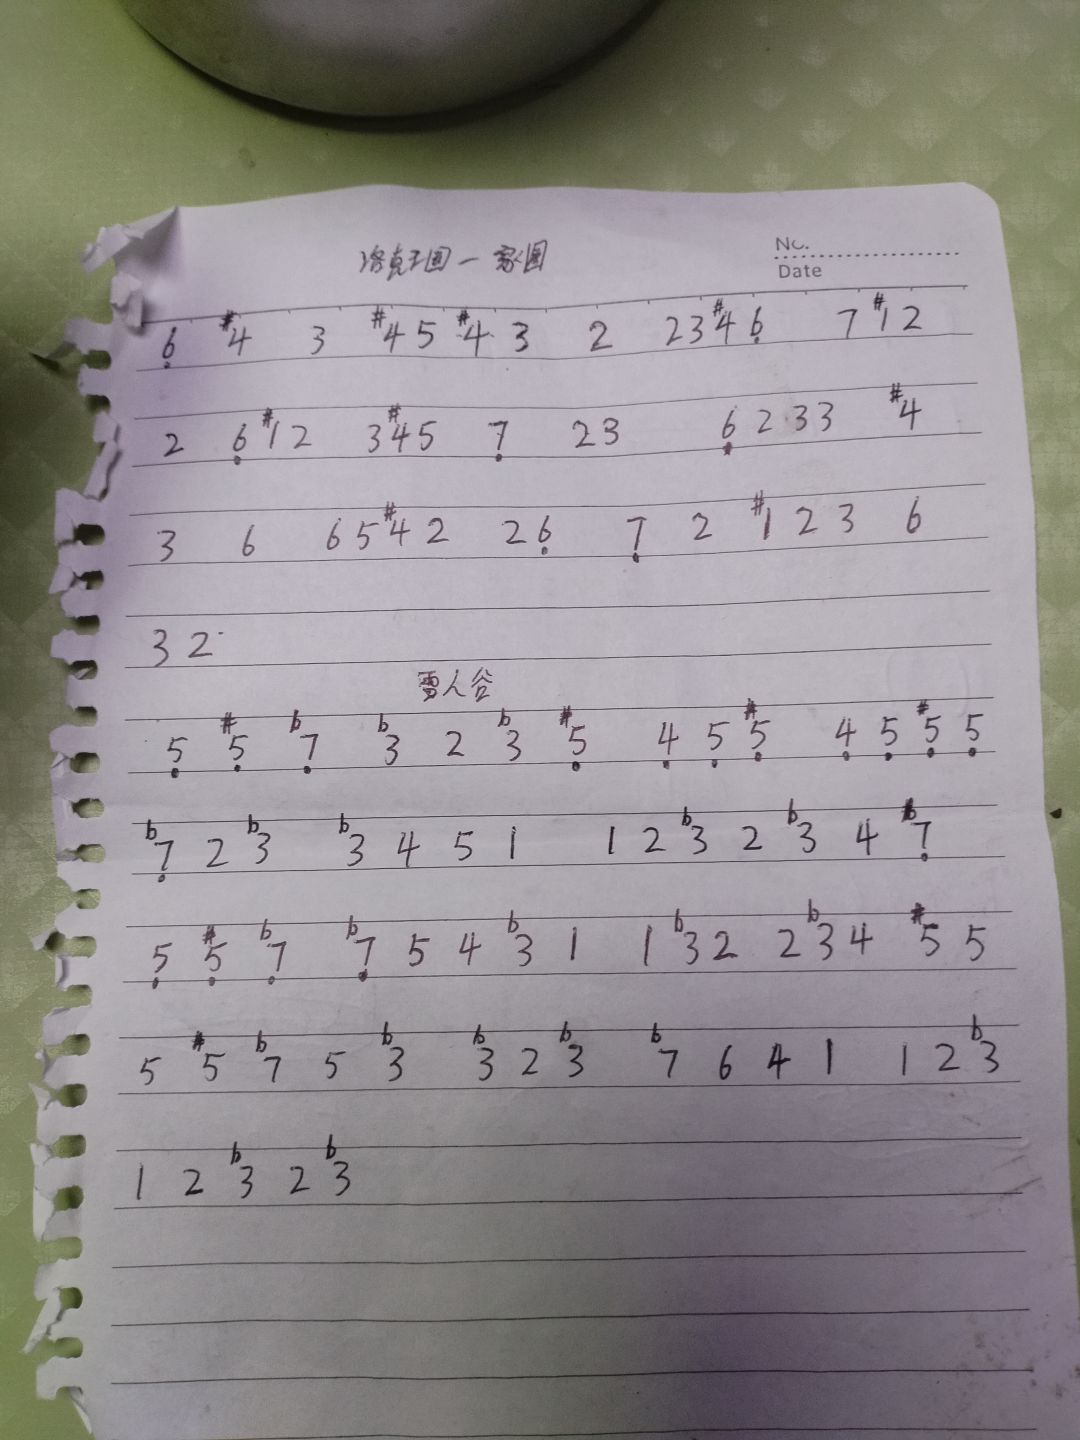 No.
Date
洛克王国一家园
6̣ #4 3 #4 5 #4 3 2 2 3 #4 6̣ 7 #1 2
2 6̣ #1 2 3 #4 5 7̣ 2 3 6̣ 2 3 3 #4
3 6 6 5 #4 2 2 6̣ 7̣ 2 #1 2 3 6
3 2
雪人谷
5̣ #5̣ b7̣ b3 2 b3 #5̣ 4̣ 5̣ #5̣ 4̣ 5̣ #5̣ 5̣
b7̣ 2 b3 b3 4 5 1 1 2 b3 2 b3 4 b7̣
5̣ #5̣ b7̣ b7̣ 5 4 b3 1 1 b3 2 2 b3 4 #5 5
5 #5 b7 5 b3 b3 2 b3 b7 6 4 1 1 2 b3
1 2 b3 2 b3